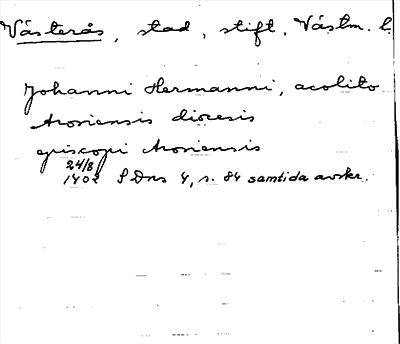 Västerås, stad, stift, Västm. l.
Johanni Hermanni, acolito
Arosiensis diocesis
episcopi Arosiensis
24/8
1402 SDns 4, s. 84 samtida avskr.